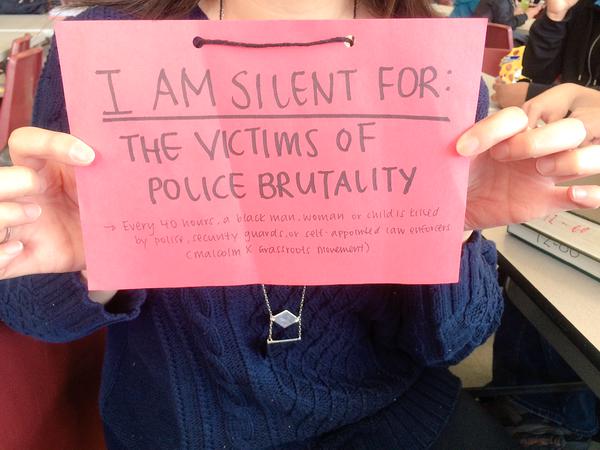 I AM SILENT FOR:
THE VICTIMS OF
POLICE BRUTALITY
→ Every 40 hours, a black man, woman or child is killed
by police, security guards, or self-appointed law enforcers
(Malcolm X Grassroots Movement)